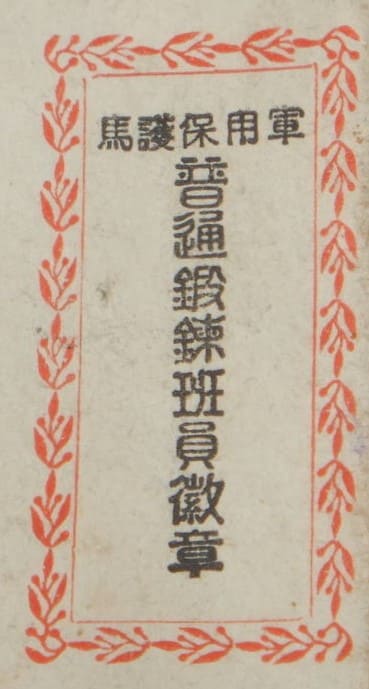 軍用保護馬
普通鍛錬班員徽章